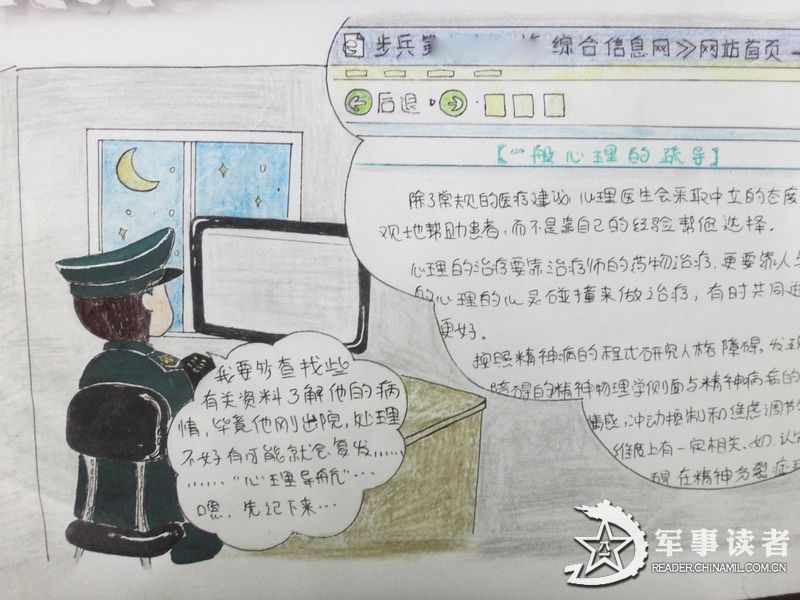 步兵第
综合信息网≫网站首页
后退
【一般心理的疏导】
除了常规的医疗建议,心理医生会采取中立的态度
观地帮助患者,而不是靠自己的经验帮他选择.
心理的治疗要靠治疗师的药物治疗,更要靠人与
的心理的心灵碰撞来做治疗,有时共同进
更好.
按照精神病的程式研究人格障碍,发现
障碍的精神物理学侧面与精神病齿的
情感,冲动控制和焦虑调节
维度上有一定相关.如,认
碍在精神分裂症
我要多查找些
有关资料了解他的病
情,毕竟他刚出院,处理
不好有可能就会复发……
……“心理导航”…
嗯,先记下来…
军事读者
READER.CHINAMIL.COM.CN